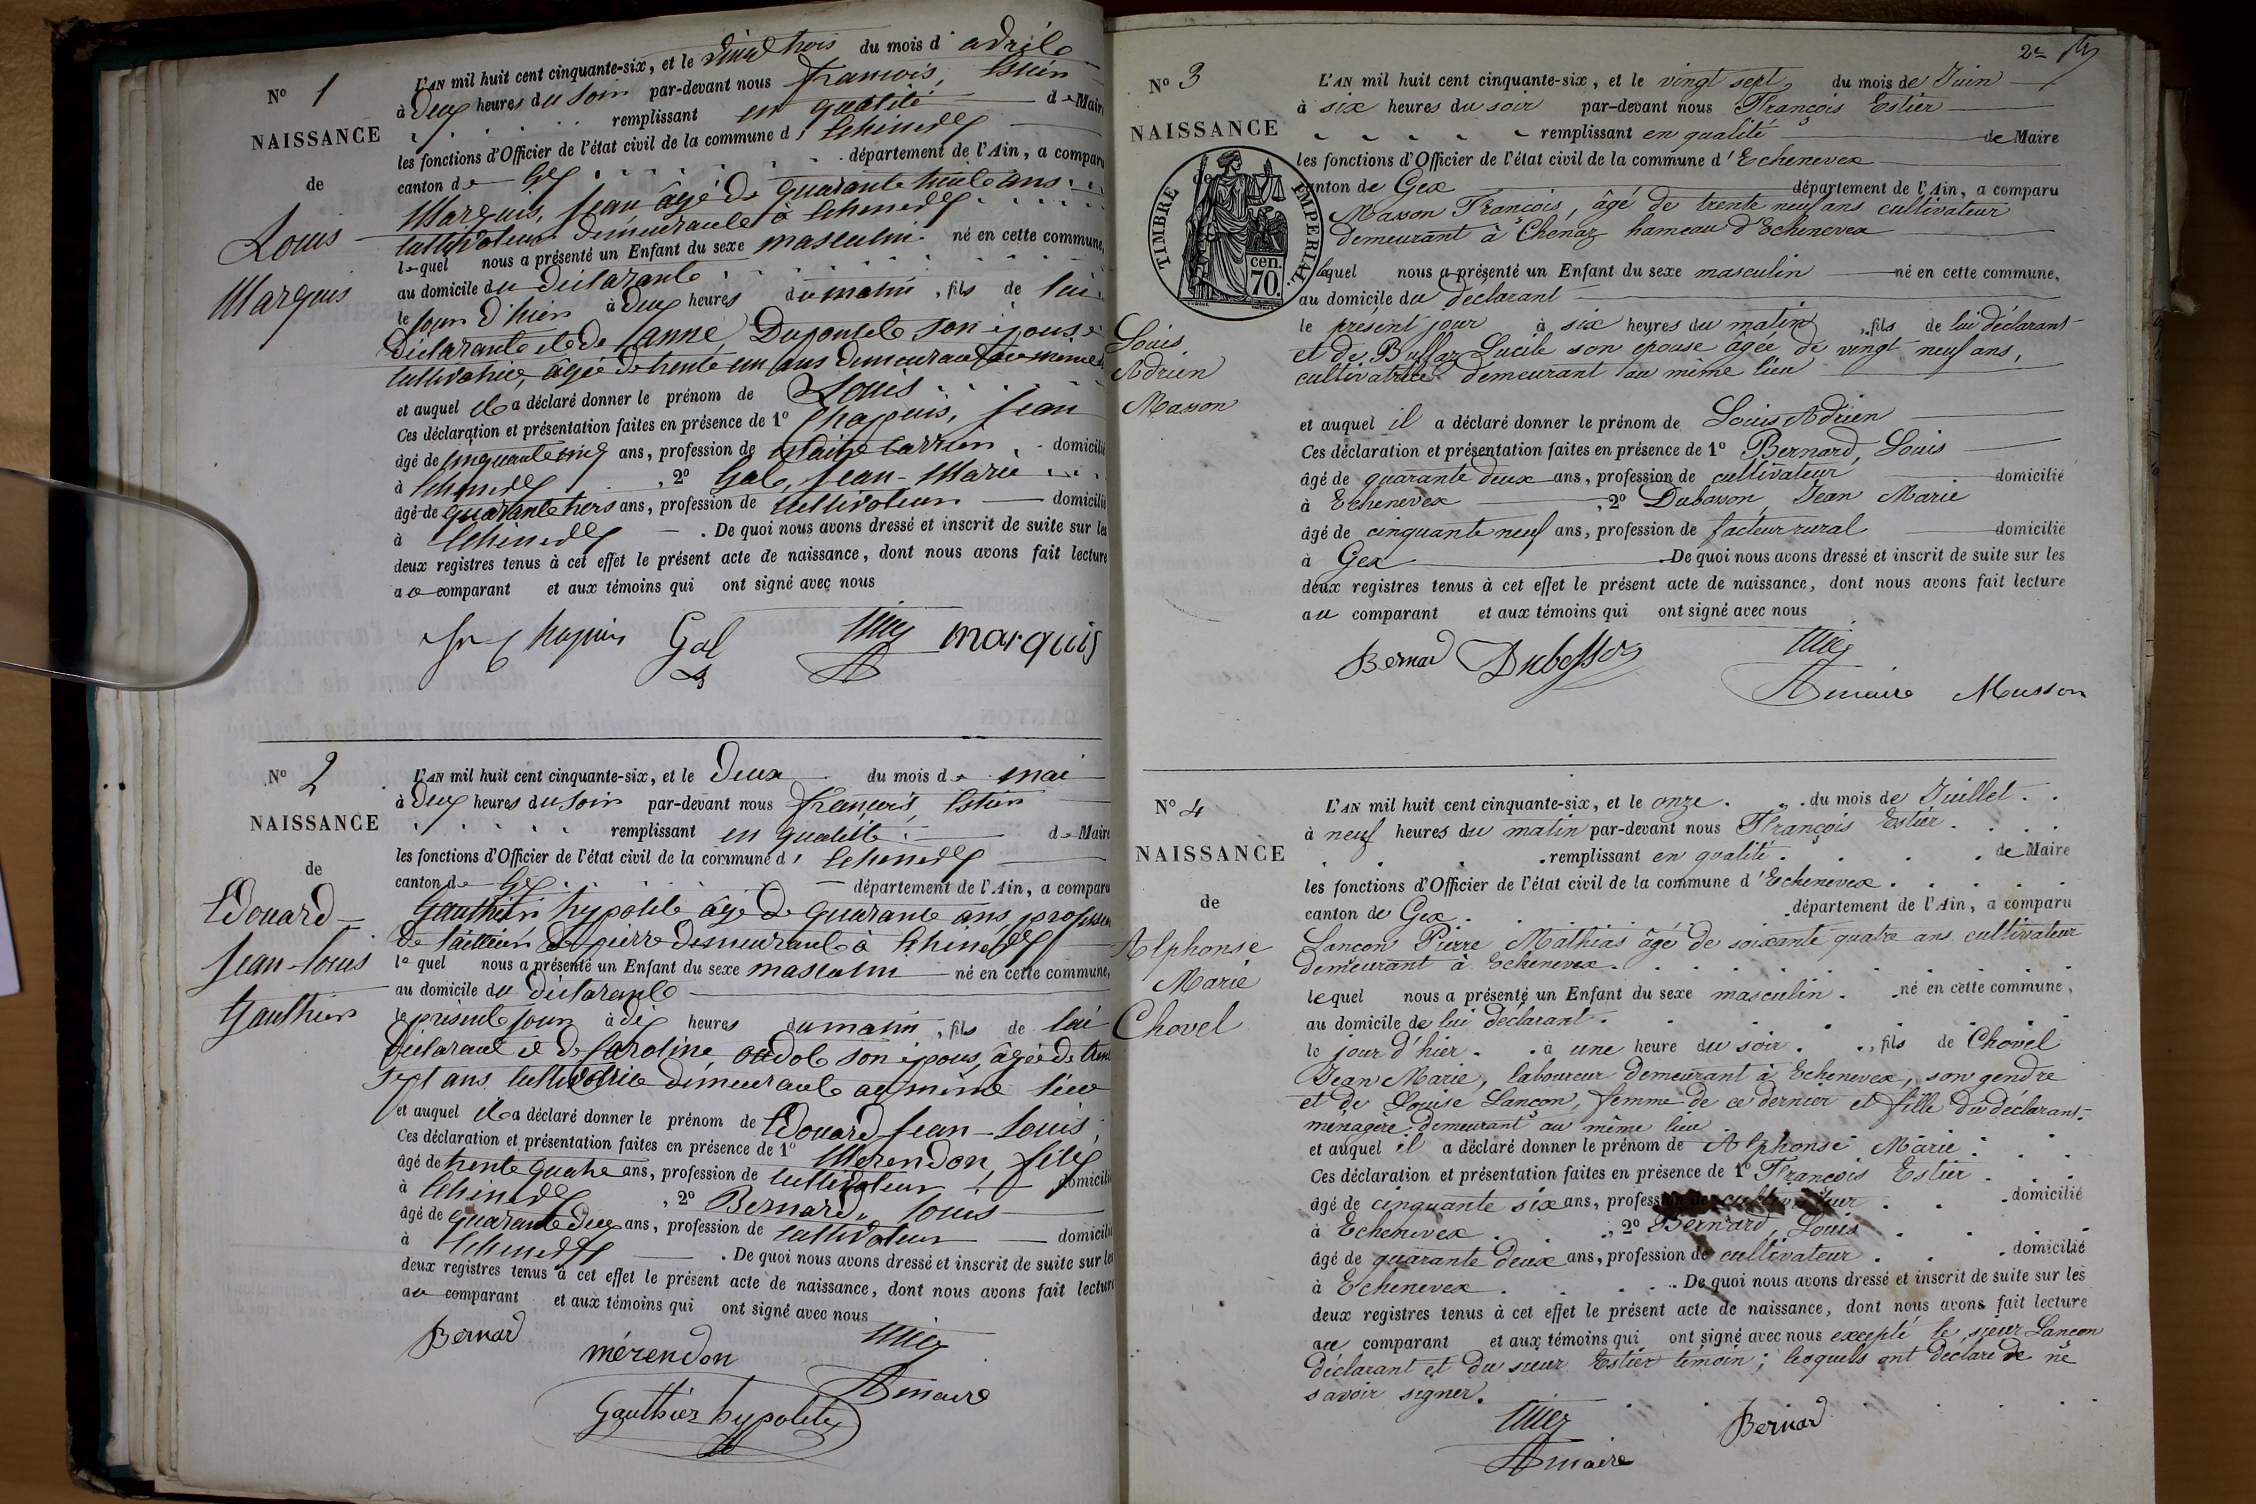 N° 1
NAISSANCE
de
Louis
Marquis
L'AN mil huit cent cinquante-six, et le vingt trois du mois d'avril
à deux heures du soir par-devant nous François, Estier
remplissant en qualité de Maire
les fonctions d'Officier de l'état civil de la commune d'Echenevex
canton de Gex département de l'Ain, a comparu
Marquis, Jean âgé de quarante huit ans
cultivateur demeurant à Echenevex
lequel nous a présenté un Enfant du sexe masculin né en cette commune,
au domicile du déclarant
le jour d'hier à deux heures du matin, fils de lui
déclarant et de Jeanne Dupont son épouse
cultivatrice, âgée de trente un ans demeurant au même
et auquel il a déclaré donner le prénom de Louis
Ces déclaration et présentation faites en présence de 1° Chapuis, Jean
âgé de cinquante cinq ans, profession de domicilié
à Echenevex, 2° Gal, Jean-Marie
âgé de quarante trois ans, profession de cultivateur domicilié
à Echenevex. De quoi nous avons dressé et inscrit de suite sur les
deux registres tenus à cet effet le présent acte de naissance, dont nous avons fait lecture
au comparant et aux témoins qui ont signé avec nous
Chapuis Gal marquis
N° 2
NAISSANCE
de
Edouard
Jean-Louis
Gauthier
L'AN mil huit cent cinquante-six, et le deux du mois de mai
à deux heures du soir par-devant nous François, Estier
remplissant en qualité de Maire
les fonctions d'Officier de l'état civil de la commune d'Echenevex
canton de Gex département de l'Ain, a comparu
Gauthier hypolite âgé de quarante ans, profession
de tailleur de pierre demeurant à Echenevex
lequel nous a présenté un Enfant du sexe masculin né en cette commune,
au domicile du déclarant
le présent jour à dix heures du matin, fils de lui
déclarant et de Caroline son épouse, âgée de trente
sept ans cultivatrice demeurant au même lieu
et auquel il a déclaré donner le prénom de Edouard Jean-Louis,
Ces déclaration et présentation faites en présence de 1° Merendon, félix
âgé de trente quatre ans, profession de cultivateur domicilié
à Echenevex, 2° Bernard, Louis
âgé de quarante deux ans, profession de cultivateur domicilié
à Echenevex. De quoi nous avons dressé et inscrit de suite sur les
deux registres tenus à cet effet le présent acte de naissance, dont nous avons fait lecture
au comparant et aux témoins qui ont signé avec nous
Bernard mérendon
Gauthier hypolite
2e
N° 3
NAISSANCE
de
TIMBRE IMPERIAL
cen.
70.
Louis
Adrien
Masson
L'AN mil huit cent cinquante-six, et le vingt sept du mois de Juin
à six heures du soir par-devant nous François Estier
remplissant en qualité de Maire
les fonctions d'Officier de l'état civil de la commune d'Echenevex
canton de Gex département de l'Ain, a comparu
Masson François, âgé de trente neuf ans cultivateur
demeurant à Chenaz hameau d'Echenevex
lequel nous a présenté un Enfant du sexe masculin né en cette commune,
au domicile du déclarant
le présent jour à six heures du matin, fils de lui déclarant
et de Buffaz Lucile son épouse âgée de vingt neuf ans,
cultivatrice demeurant au même lieu
et auquel il a déclaré donner le prénom de Louis Adrien
Ces déclaration et présentation faites en présence de 1° Bernard, Louis
âgé de quarante deux ans, profession de cultivateur domicilié
à Echenevex, 2° Dubosson, Jean Marie
âgé de cinquante neuf ans, profession de facteur rural domicilié
à Gex De quoi nous avons dressé et inscrit de suite sur les
deux registres tenus à cet effet le présent acte de naissance, dont nous avons fait lecture
au comparant et aux témoins qui ont signé avec nous
Bernard Dubosson
Masson
N° 4
NAISSANCE
de
Alphonse
Marie
Chovel
L'AN mil huit cent cinquante-six, et le onze du mois de Juillet
à neuf heures du matin par-devant nous François Estier
remplissant en qualité de Maire
les fonctions d'Officier de l'état civil de la commune d'Echenevex
canton de Gex département de l'Ain, a comparu
Lançon Pierre Mathias âgé de soixante quatre ans cultivateur
demeurant à Echenevex
lequel nous a présenté un Enfant du sexe masculin né en cette commune,
au domicile de lui déclarant
le jour d'hier à une heure du soir, fils de Chovel
Jean Marie, laboureur demeurant à Echenevex, son gendre
et de Louise Lançon, femme de ce dernier et fille du déclarant
ménagère demeurant au même lieu
et auquel il a déclaré donner le prénom de Alphonse Marie
Ces déclaration et présentation faites en présence de 1° François Estier
âgé de cinquante six ans, profession de cultivateur domicilié
à Echenevex, 2° Bernard, Louis
âgé de quarante deux ans, profession de cultivateur domicilié
à Echenevex De quoi nous avons dressé et inscrit de suite sur les
deux registres tenus à cet effet le présent acte de naissance, dont nous avons fait lecture
au comparant et aux témoins qui ont signé avec nous excepté le sieur Lançon
déclarant et du sieur Estier témoin; lesquels ont déclaré de ne
savoir signer.
Bernard